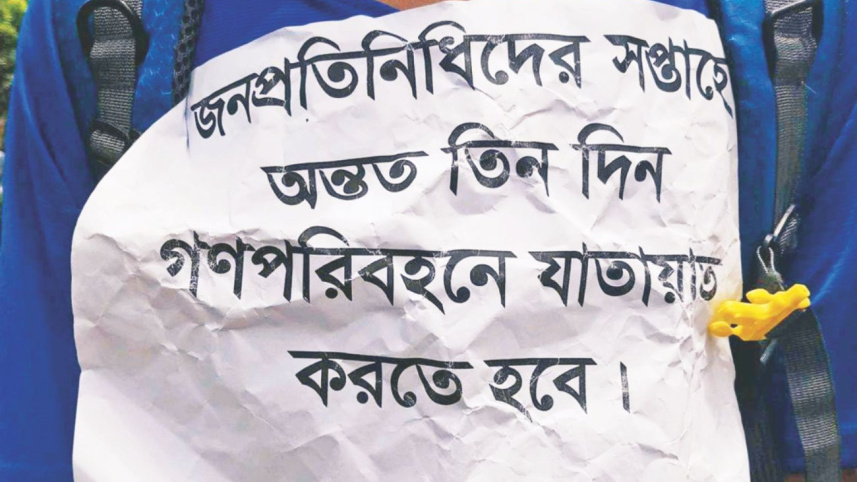 জনপ্রতিনিধিদের সপ্তাহে
অন্তত তিন দিন
গণপরিবহনে যাতায়াত
করতে হবে।